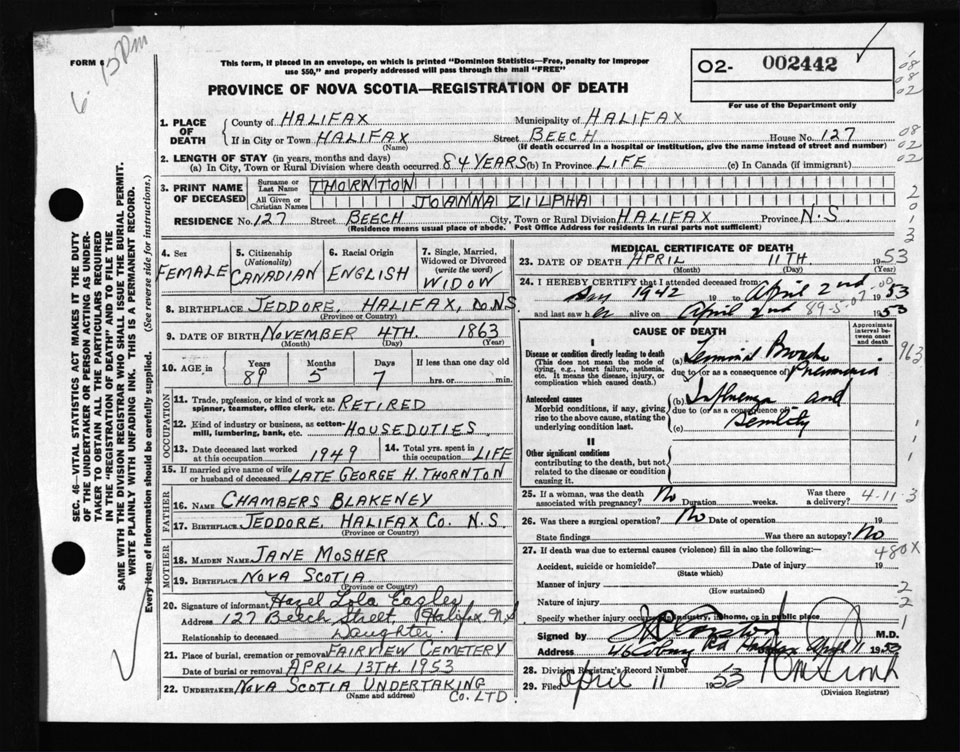 FORM 6
This form, if placed in an envelope, on which is printed "Dominion Statistics—Free, penalty for improper
use $50," and properly addressed will pass through the mail "FREE"
PROVINCE OF NOVA SCOTIA—REGISTRATION OF DEATH
O2- 002442
For use of the Department only
1. PLACE OF DEATH
County of HALIFAX Municipality of HALIFAX
If in City or Town HALIFAX Street BEECH House No. 127
(Name) (If death occurred in a hospital or institution, give the name instead of street and number)
2. LENGTH OF STAY (in years, months and days)
(a) In City, Town or Rural Division where death occurred 84 YEARS (b) In Province LIFE (c) In Canada (if immigrant)
3. PRINT NAME OF DECEASED
Surname or Last Name THORNTON
All Given or Christian Names JOANNA ZILPHA
RESIDENCE No. 127 Street BEECH City, Town or Rural Division HALIFAX Province N.S.
(Residence means usual place of abode. Post Office Address for residents in rural parts not sufficient)
4. Sex FEMALE
5. Citizenship (Nationality) CANADIAN
6. Racial Origin ENGLISH
7. Single, Married, Widowed or Divorced (write the word) WIDOW
8. BIRTHPLACE JEDDORE, HALIFAX, Do. NS
(Province or Country)
9. DATE OF BIRTH NOVEMBER 4TH. 1863
(Month) (Day) (Year)
10. AGE in Years 89 Months 5 Days 7 If less than one day old
hrs. or min.
OCCUPATION
11. Trade, profession, or kind of work as spinner, teamster, office clerk, etc. RETIRED
12. Kind of industry or business, as cotton-mill, lumbering, bank, etc. HOUSEDUTIES
13. Date deceased last worked at this occupation 1949
14. Total yrs. spent in this occupation LIFE
15. If married give name of wife or husband of deceased LATE GEORGE H. THORNTON
FATHER
16. Name CHAMBERS BLAKENEY
17. Birthplace JEDDORE, HALIFAX CO. N.S.
(Province or Country)
MOTHER
18. MAIDEN NAME JANE MOSHER
19. BIRTHPLACE NOVA SCOTIA
(Province or Country)
20. Signature of informant Hazel Lola Eagles
Address 127 Beech Street, Halifax N.S
Relationship to deceased Daughter.
21. Place of burial, cremation or removal FAIRVIEW CEMETERY
Date of burial or removal APRIL 13TH. 1953
22. UNDERTAKER NOVA SCOTIA UNDERTAKING CO. LTD.
(Name and address)
MEDICAL CERTIFICATE OF DEATH
23. DATE OF DEATH APRIL 11TH 1953
(Month) (Day) (Year)
24. I HEREBY CERTIFY that I attended deceased from
1942 19 to April 2nd 1953
and last saw her alive on April 2nd 1953
89-5-07
CAUSE OF DEATH
Approximate interval between onset and death
I
Disease or condition directly leading to death (a) Terminal Broncho
(This does not mean the mode of dying, e.g., heart failure, asthenia, etc. It means the disease, injury, or complication which caused death.)
due to (or as a consequence of) Pneumonia
Antecedent causes (b) Influenza and
Morbid conditions, if any, giving rise to the above cause, stating the underlying condition last.
due to (or as a consequence of)
(c) Senility
II
Other significant conditions
contributing to the death, but not related to the disease or condition causing it.
25. If a woman, was the death associated with pregnancy? No Duration weeks. Was there a delivery?
4-11
26. Was there a surgical operation? No Date of operation 19
State findings Was there an autopsy? No
27. If death was due to external causes (violence) fill in also the following:—
480X
Accident, suicide or homicide? Date of injury 19
(State which)
Manner of injury
(How sustained)
Nature of injury
Specify whether injury occurred in industry, in home, or in public place
Signed by M.D.
Address Rd Halifax April 11 1953
28. Division Registrar's Record Number
29. Filed April 11 1953
(Division Registrar)
SEC. 46—VITAL STATISTICS ACT MAKES IT THE DUTY
OF THE UNDERTAKER OR PERSON ACTING AS UNDER-
TAKER TO OBTAIN ALL THE PARTICULARS REQUIRED
IN THE "REGISTRATION OF DEATH" AND TO FILE THE
SAME WITH THE DIVISION REGISTRAR WHO SHALL ISSUE THE BURIAL PERMIT.
WRITE PLAINLY WITH UNFADING INK. THIS IS A PERMANENT RECORD.
Every item of Information should be carefully supplied. (See reverse side for instructions.)